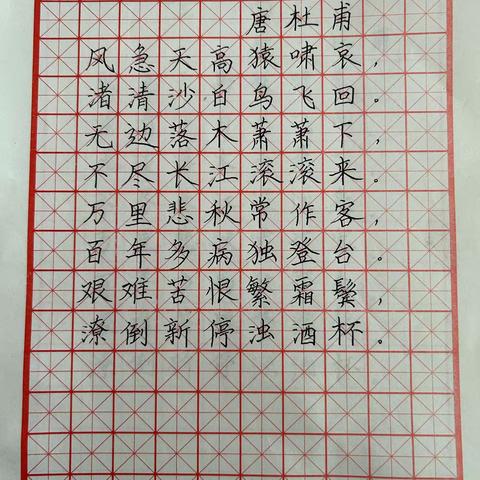 唐杜甫
风急天高猿啸哀，
渚清沙白鸟飞回。
无边落木萧萧下，
不尽长江滚滚来。
万里悲秋常作客，
百年多病独登台。
艰难苦恨繁霜鬓，
潦倒新停浊酒杯。